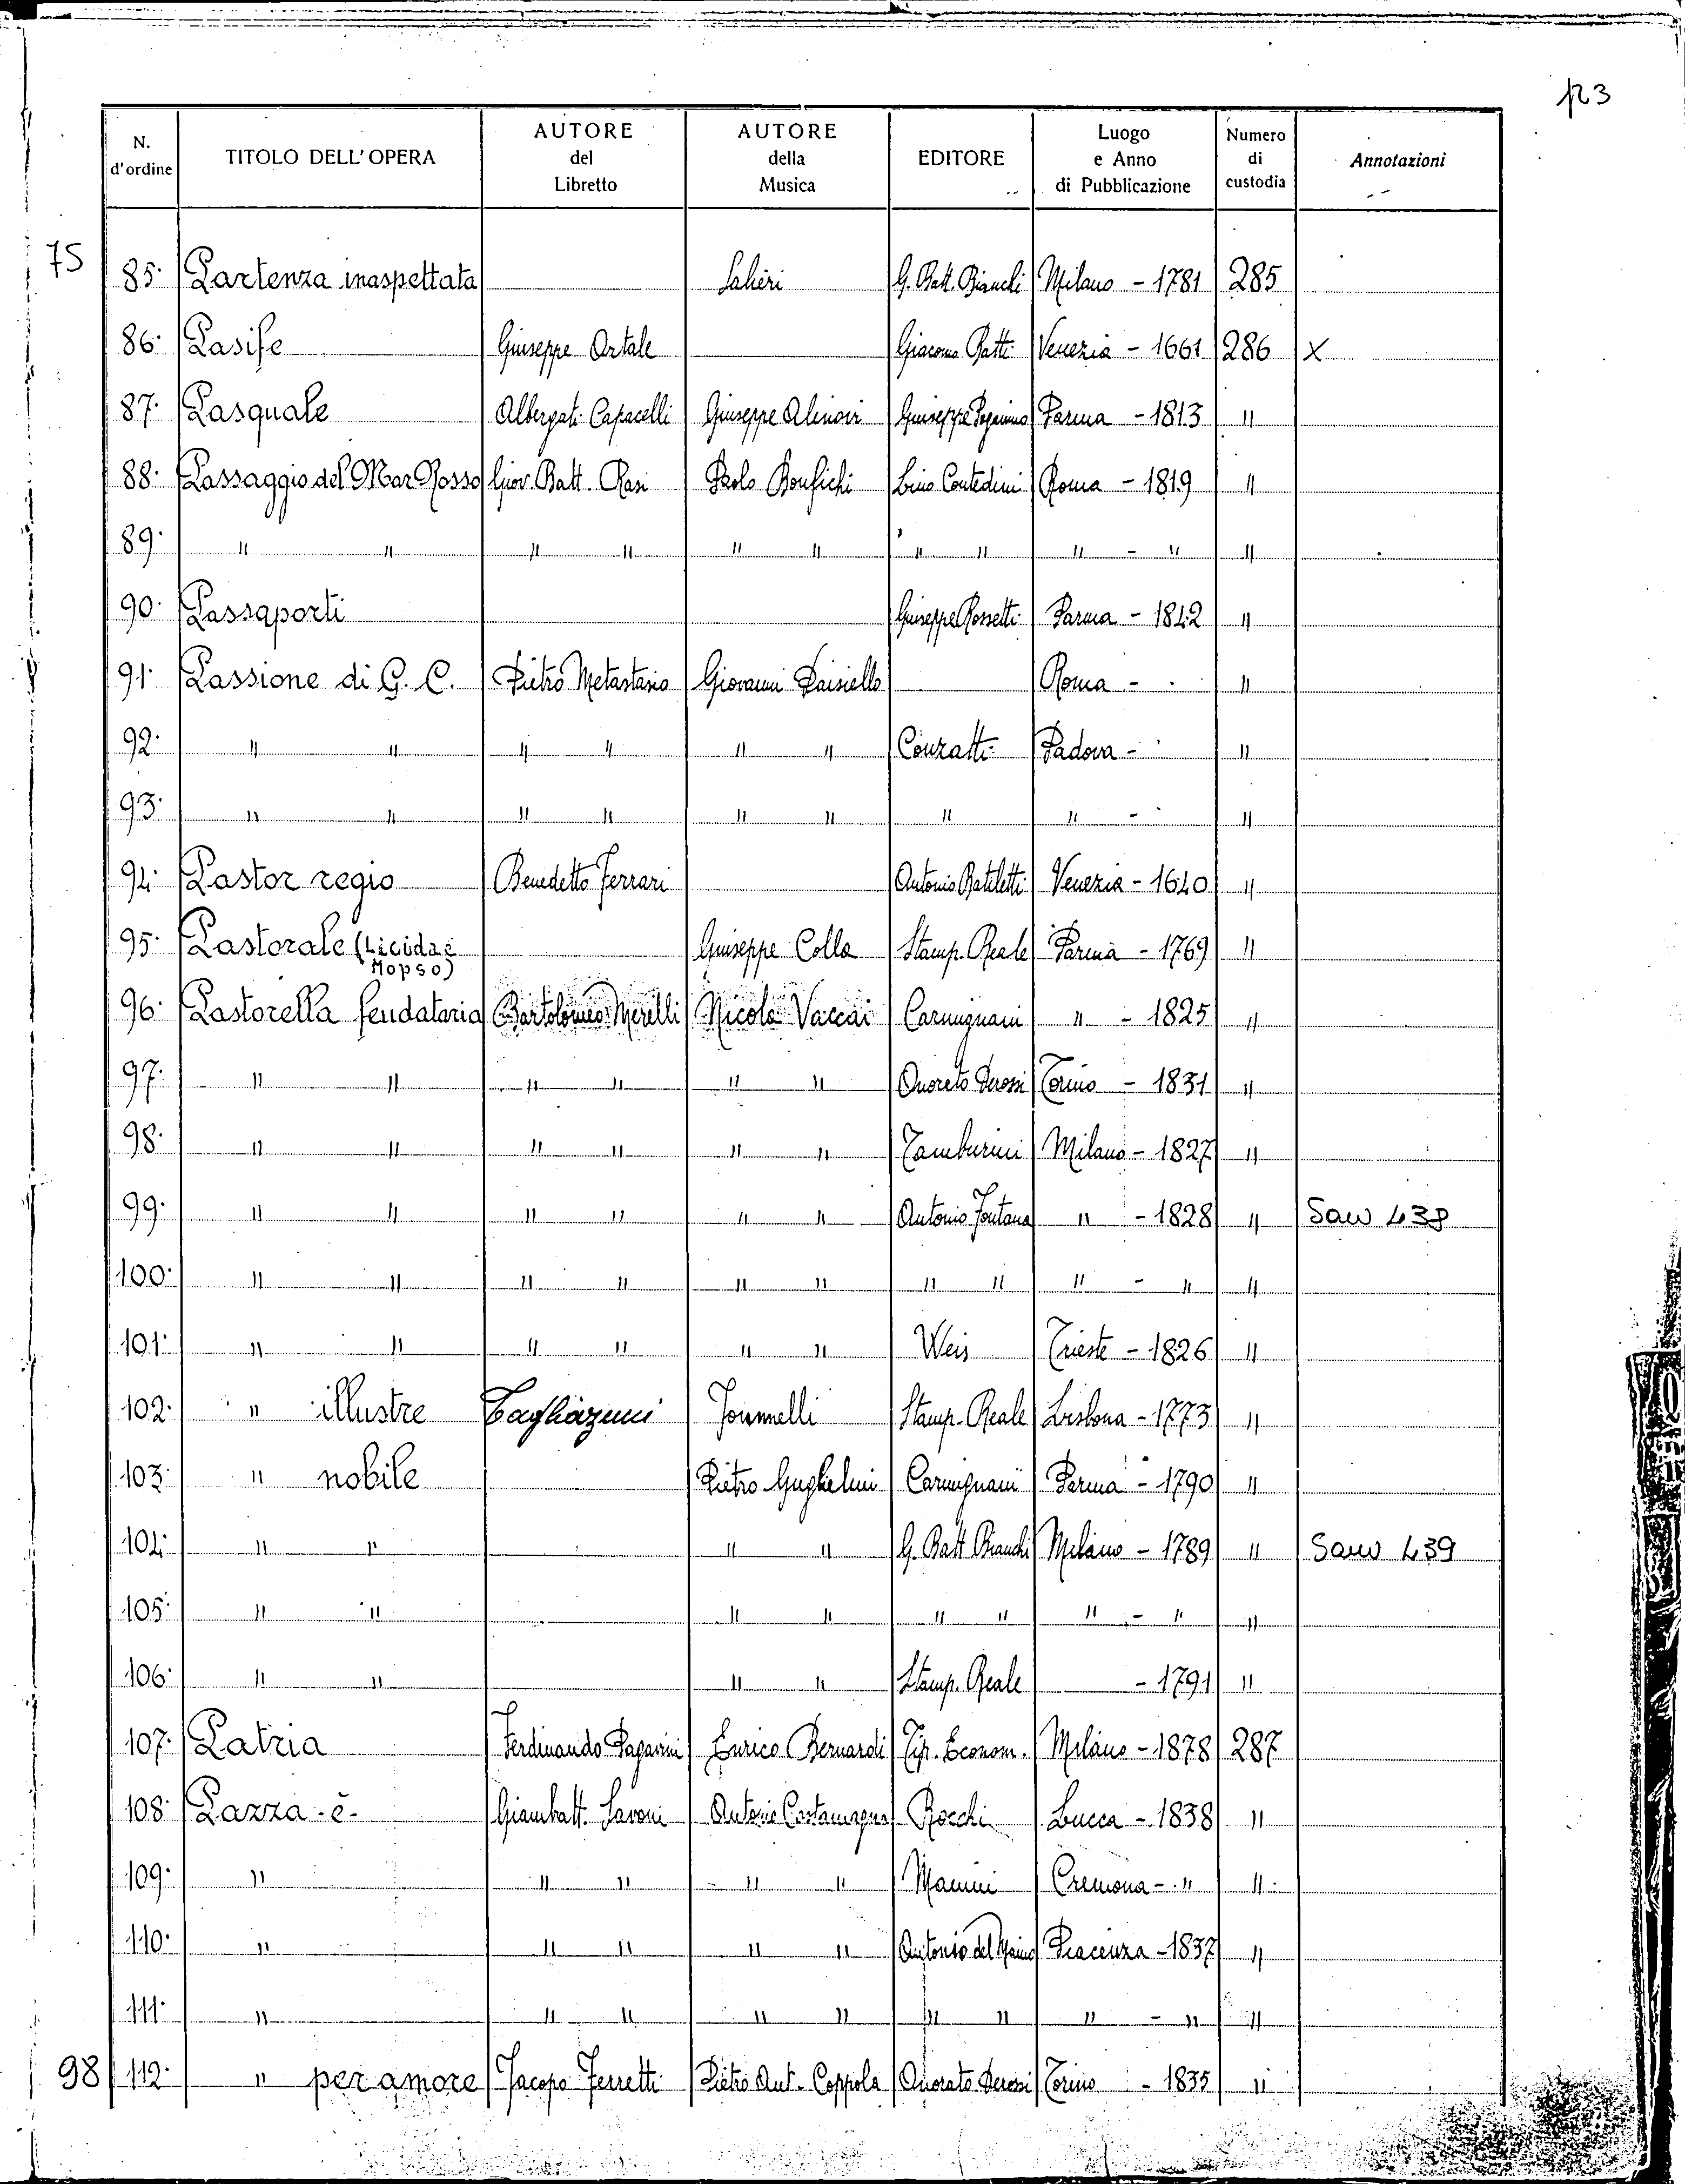 p23
N. d'ordine | TITOLO DELL'OPERA | AUTORE del Libretto | AUTORE della Musica | EDITORE | Luogo e Anno di Pubblicazione | Numero di custodia | Annotazioni
75
85. Partenza inaspettata | | Salieri | G. Batt. Bianchi | Milano - 1781 | 285
86. Pasife | Giuseppe Ortale | | Giacomo Batti | Venezia - 1661 | 286 | X
87. Pasquale | Albergati Capacelli | Giuseppe Alinovi | Giuseppe Paganino | Parma - 1813 | "
88. Passaggio del Mar Rosso | Giov. Batt. Rasi | Paolo Bonfichi | Lino Contedini | Roma - 1819 | "
89. " " | " " | " " | " " | " - " | "
90. Passaporti | | | Giuseppe Rossetti | Parma - 1842 | "
91. Passione di G. C. | Pietro Metastasio | Giovanni Paisiello | | Roma - | "
92. " " | " " | " " | Conzatti | Padova - | "
93. " " | " " | " " | " | " - | "
94. Pastor regio | Benedetto Ferrari | | Antonio Bariletti | Venezia - 1640 | "
95. Pastorale (Licida e Mopso) | | Giuseppe Colla | Stamp. Reale | Parma - 1769 | "
96. Pastorella feudataria | Bartolomeo Merelli | Nicola Vaccai | Carmignani | " - 1825 | "
97. " " | " " | " " | Onorato Derossi | Torino - 1831 | "
98. " " | " " | " " | Tamburini | Milano - 1827 | "
99. " " | " " | " " | Antonio Fontana | " - 1828 | " | Saw 438
100. " " | " " | " " | " " | " - " | "
101. " " | " " | " " | Weis | Trieste - 1826 | "
102. " illustre | Tagliazucci | Jommelli | Stamp. Reale | Lisbona - 1773 | "
103. " nobile | | Pietro Guglielmi | Carmignani | Parma - 1790 | "
104. " " | | " " | G. Batt. Bianchi | Milano - 1789 | " | Saw 439
105. " " | | " " | " " | " - " | "
106. " " | | " " | Stamp. Reale | - 1791 | "
107. Patria | Ferdinando Paganini | Enrico Bernardi | Tip. Econom. | Milano - 1878 | 287
108. Pazza - è - | Giambatt. Savoni | Antonio Costamagna | Rocchi | Lucca - 1838 | "
109. " | " " | " " | Manini | Cremona - " | "
110. " | " " | " " | Antonio del Maino | Piacenza - 1837 | "
111. " | " " | " " | " " | " - " | "
98
112. " per amore | Jacopo Ferretti | Pietro Ant. Coppola | Onorato Derossi | Torino - 1835 | "